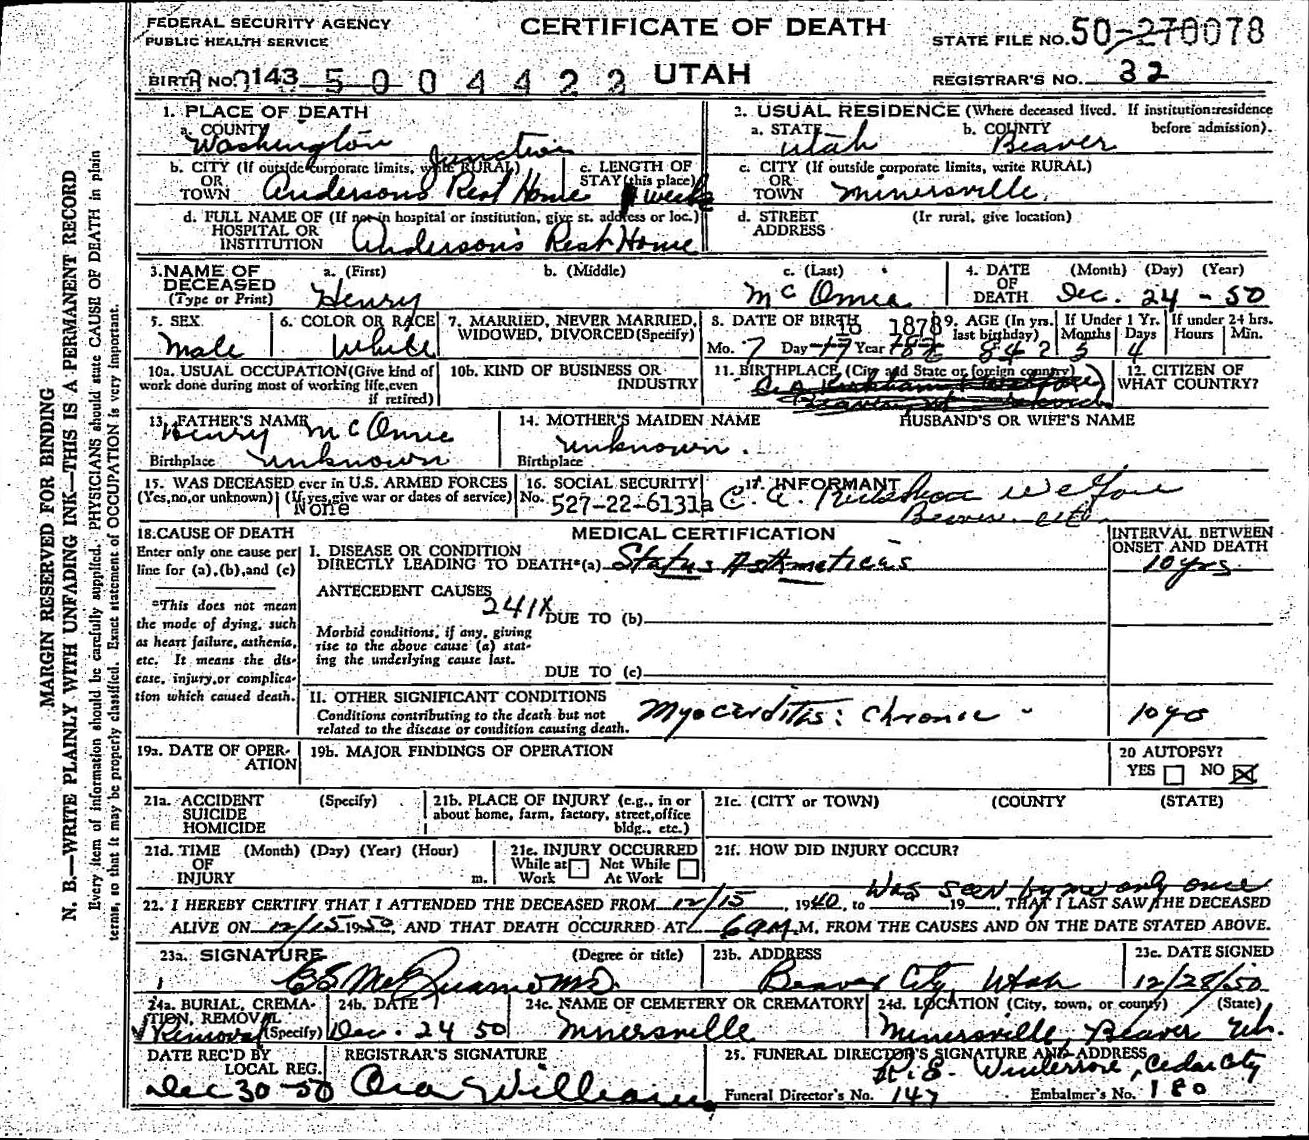 FEDERAL SECURITY AGENCY
PUBLIC HEALTH SERVICE
CERTIFICATE OF DEATH
STATE FILE NO. 50-270078
BIRTH NO. 143 5004422 UTAH
REGISTRAR'S NO. 32
1. PLACE OF DEATH
a. COUNTY
Washington
2. USUAL RESIDENCE (Where deceased lived. If institution:residence before admission).
a. STATE Utah b. COUNTY Beaver
b. CITY (If outside corporate limits, write RURAL)
OR
TOWN
Junction
Andersons Rest Home
c. LENGTH OF
STAY (this place)
1 week
c. CITY (If outside corporate limits, write RURAL)
OR
TOWN Minersville
d. FULL NAME OF (If not in hospital or institution, give st. address or loc.)
HOSPITAL OR
INSTITUTION Anderson's Rest Home
d. STREET (Ir rural, give location)
ADDRESS
3. NAME OF
DECEASED
(Type or Print)
a. (First) b. (Middle) c. (Last)
Henry McOmie
4. DATE
OF
DEATH
(Month) (Day) (Year)
Dec. 24 - 50
5. SEX
Male
6. COLOR OR RACE
White
7. MARRIED, NEVER MARRIED,
WIDOWED, DIVORCED (Specify)
8. DATE OF BIRTH
18 1878
Mo. 7 Day 17 Year
9. AGE (In yrs.
last birthday)
If Under 1 Yr.
Months Days
If under 24 hrs.
Hours Min.
84 2 5 4
10a. USUAL OCCUPATION (Give kind of
work done during most of working life, even
if retired)
10b. KIND OF BUSINESS OR
INDUSTRY
11. BIRTHPLACE (City and State or foreign country)
12. CITIZEN OF
WHAT COUNTRY?
13. FATHER'S NAME
Henry McOmie
Birthplace unknown
14. MOTHER'S MAIDEN NAME
unknown.
Birthplace
HUSBAND'S OR WIFE'S NAME
15. WAS DECEASED ever in U.S. ARMED FORCES
(Yes, no, or unknown) (If yes, give war or dates of service)
None
16. SOCIAL SECURITY
No. 527-22-6131a
17. INFORMANT
Welfare
Beaver
18. CAUSE OF DEATH
Enter only one cause per
line for (a), (b), and (c)
*This does not mean
the mode of dying, such
as heart failure, asthenia,
etc. It means the dis-
ease, injury, or complica-
tion which caused death.
MEDICAL CERTIFICATION
INTERVAL BETWEEN
ONSET AND DEATH
I. DISEASE OR CONDITION
DIRECTLY LEADING TO DEATH*(a) Status Asthmaticus 10 yrs
ANTECEDENT CAUSES
241X DUE TO (b)
Morbid conditions, if any, giving
rise to the above cause (a) stat-
ing the underlying cause last.
DUE TO (c)
II. OTHER SIGNIFICANT CONDITIONS
Conditions contributing to the death but not
related to the disease or condition causing death.
Myocarditis: Chronic 10 yrs
19a. DATE OF OPER-
ATION
19b. MAJOR FINDINGS OF OPERATION
20 AUTOPSY?
YES NO
21a. ACCIDENT (Specify)
SUICIDE
HOMICIDE
21b. PLACE OF INJURY (e.g., in or
about home, farm, factory, street, office
bldg., etc.)
21c. (CITY or TOWN) (COUNTY) (STATE)
21d. TIME (Month) (Day) (Year) (Hour)
OF
INJURY m.
21e. INJURY OCCURRED
While at Not While
Work At Work
21f. HOW DID INJURY OCCUR?
Was seen by me only once
22. I HEREBY CERTIFY THAT I ATTENDED THE DECEASED FROM 12/15, 1940, to 19 , THAT I LAST SAW THE DECEASED
ALIVE ON 12/15 1950, AND THAT DEATH OCCURRED AT 6 am M. FROM THE CAUSES AND ON THE DATE STATED ABOVE.
23a. SIGNATURE (Degree or title)
23b. ADDRESS
Beaver City, Utah
23c. DATE SIGNED
12/28/50
24a. BURIAL, CREMA-
TION, REMOVAL
(Specify)
Removal
24b. DATE
Dec. 24 50
24c. NAME OF CEMETERY OR CREMATORY
Minersville
24d. LOCATION (City, town, or county) (State)
Minersville, Beaver Uth.
DATE REC'D BY
LOCAL REG.
Dec 30-50
REGISTRAR'S SIGNATURE
Ora Williams
25. FUNERAL DIRECTOR'S SIGNATURE AND ADDRESS
Cedar City
Funeral Director's No. 147 Embalmer's No. 180
MARGIN RESERVED FOR BINDING
N. B.—WRITE PLAINLY WITH UNFADING INK—THIS IS A PERMANENT RECORD
Every item of information should be carefully supplied. PHYSICIANS should state CAUSE OF DEATH in plain
terms, so that it may be properly classified. Exact statement of OCCUPATION is very important.